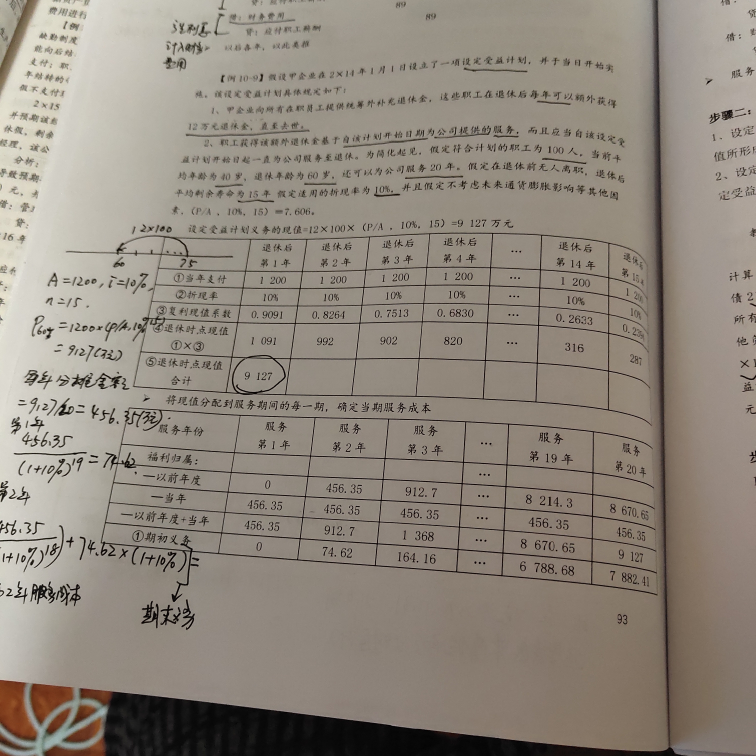 89
借：财务费用
89
贷：应付职工薪酬
以后各年，以此类推
计入财务
费用
【例10-9】假设甲企业在2×14年1月1日设立了一项设定受益计划，并于当日开始实
施。该设定受益计划具体规定如下：
1、甲企业向所有在职员工提供统筹外补充退休金，这些职工在退休后每年可以额外获得
12万元退休金，直至去世。
2、职工获得该额外退休金基于自该计划开始日期为公司提供的服务，而且应当自该设定受
益计划开始日起一直为公司服务至退休。为简化起见，假定符合计划的职工为100人，当前平
均年龄为40岁，退休年龄为60岁，还可以为公司服务20年。假定在退休前无人离职，退休后
平均剩余寿命为15年 假定适用的折现率为10%，并且假定不考虑未来通货膨胀影响等其他因
素，(P/A，10%，15)＝7.606。
设定受益计划义务的现值=12×100×（P/A，10%，15）=9 127万元
12×100
60 75
A=1200, i=10%,
n=15.
=9127(万)
=9127/20=456.35(万).
第1年
456.35
(1+10%)^19 =74.62
第2年
456.35
(1+10%)^18 + 74.62×(1+10%)=
期末义务
退休后第1年 退休后第2年 退休后第3年 退休后第4年 … 退休后第14年 退休后第15年
①当年支付 1 200 1 200 1 200 1 200 … 1 200 1 200
②折现率 10% 10% 10% 10% … 10% 10%
③复利现值系数 0.9091 0.8264 0.7513 0.6830 … 0.2633
④退休时点现值①×③ 1 091 992 902 820 … 316 287
⑤退休时点现值合计 9 127
➢ 将现值分配到服务期间的每一期，确定当期服务成本
服务年份 服务第1年 服务第2年 服务第3年 … 服务第19年 服务第20年
福利归属： …
—以前年度 0 456.35 912.7 … 8 214.3 8 670.65
—当年 456.35 456.35 456.35 … 456.35 456.35
—以前年度+当年 456.35 912.7 1 368 … 8 670.65 9 127
①期初义务 0 74.62 164.16 … 6 788.68 7 882.41
93
➢ 服务
步骤二：
1、设定
值所形成
2、设定
定受益
计算
所有